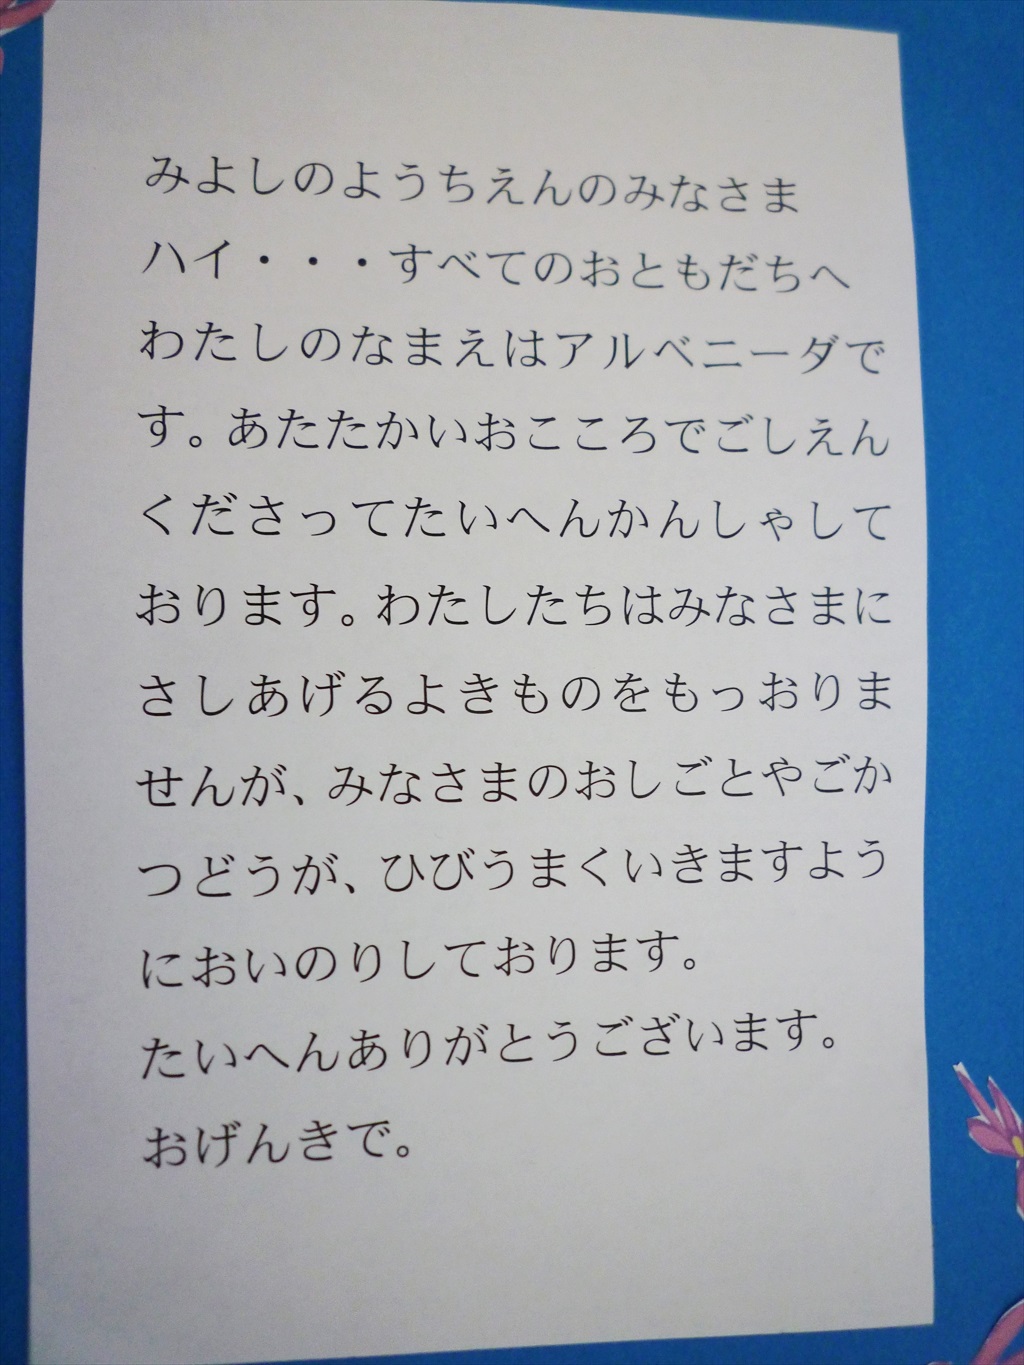 みよしのようちえんのみなさま
ハイ・・・すべてのおともだちへ
わたしのなまえはアルベニーダで
す。あたたかいおこころでごしえん
くださってたいへんかんしゃして
おります。わたしたちはみなさまに
さしあげるよきものをもっおりま
せんが、みなさまのおしごとやごか
つどうが、ひびうまくいきますよう
においのりしております。
たいへんありがとうございます。
おげんきで。